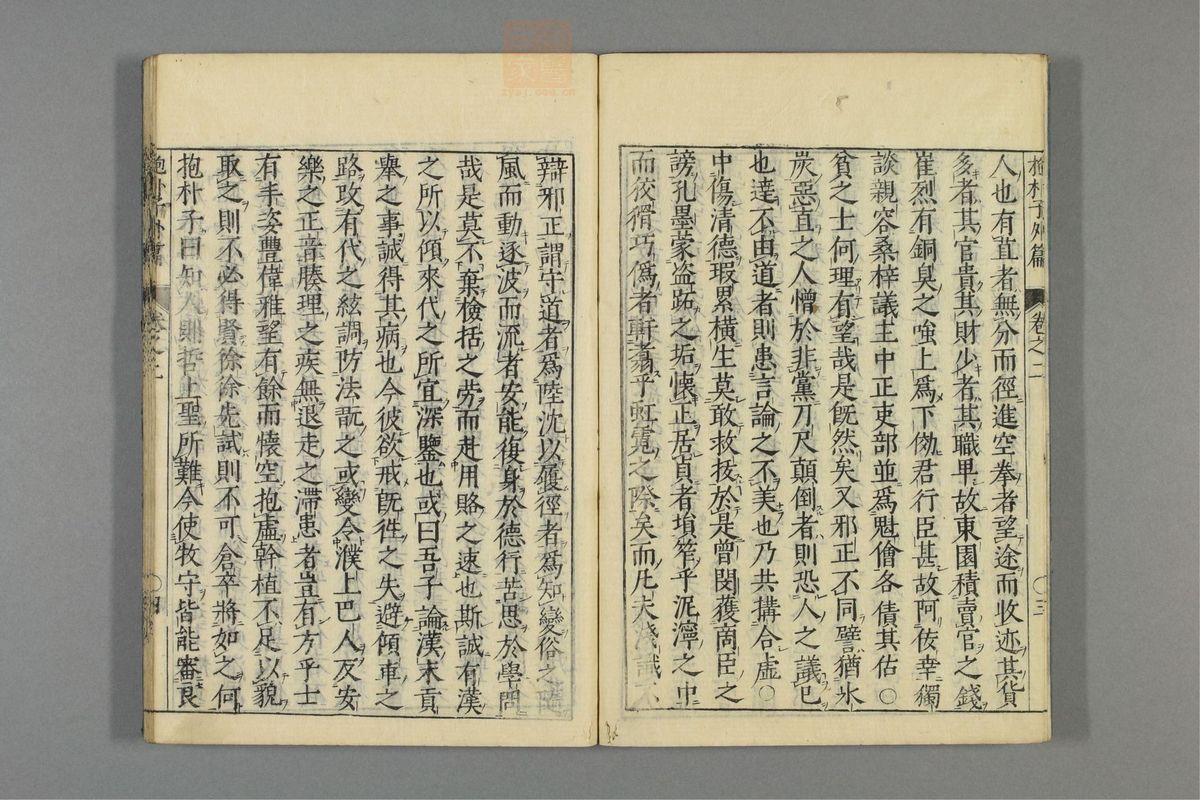 抱朴子外篇 卷之二 〇三
人也有直者無分而徑進空拳者望途而收迹其貨
多者其官貴其財少者其職卑故東園積賣官之錢
崔烈有銅臭之嗤上爲下效君行臣甚故阿佞幸獨
談親容桑梓議主中正吏部並爲魁儈各債其估〇
貧之士何理有望哉是既然矣又邪正不同譬猶冰
炭惡直之人憎於非黨刀尺顛倒者則恐人之議己
也達不由道者則患言論之不美也乃共搆合虛〇
中傷清德瑕累橫生莫敢救拔於是曾閔獲商臣之
謗孔墨蒙盗跖之垢懷正居貞者塡笮乎泥濘之中
而狡猾巧僞者軒翥乎虹霓之際矣而凡夫淺識不
辯邪正謂守道者爲陸沈以履徑者爲知變俗之隨
風而動逐波而流者安能復身於德行苦思於學問
哉是莫不棄檢括之勞而赴用賂之速也斯誠有漢
之所以傾來代之所宜深鑒也或曰吾子論漢末貢
擧之事誠得其病也今彼欲戒旣徃之失避傾車之
路改有代之絃調防法翫之或變令濮上巴人反安
樂之正音腠理之疾無退走之滯患者豈有方乎士
有手姿豐偉雅望有餘而懷空抱虛幹植不足以貌
取之則不必得賢徐徐先試則不可倉卒將如之何
抱朴子曰知人則哲上聖所難今使牧守皆能審良
抱朴子外篇 卷之二 〇四